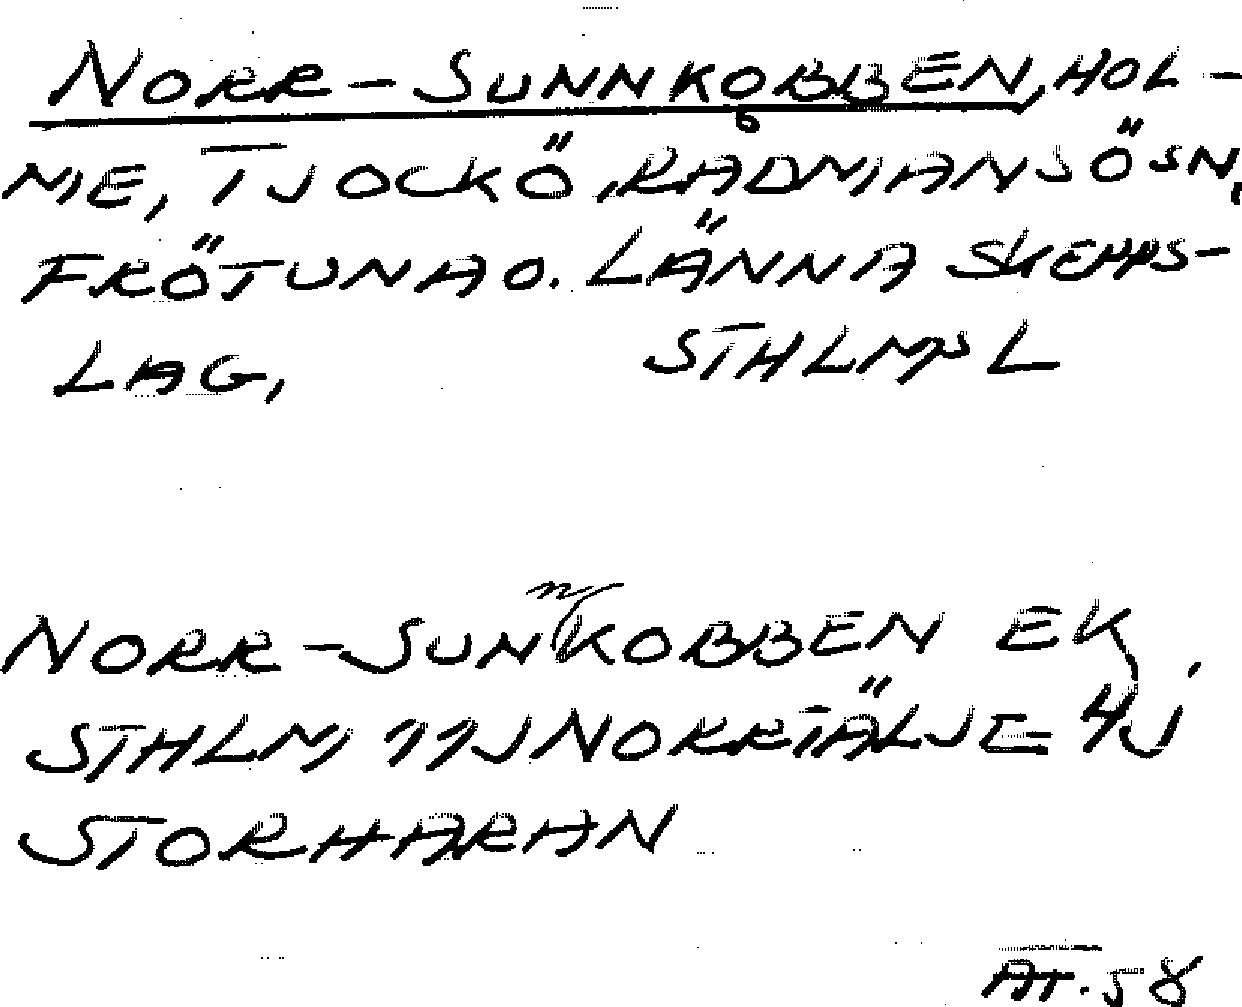 NORR-SUNNKOBBEN, HOL-
ME, TJOCKÖ, RÅDMANSÖ SN,
FRÖTUNA O. LÄNNA SKEPPS-
LAG, STHLMS L
NORR-SUNNKOBBEN EK,
STHLM, 11J NORRTÄLJE 4J
STORHARAN
AT. 58